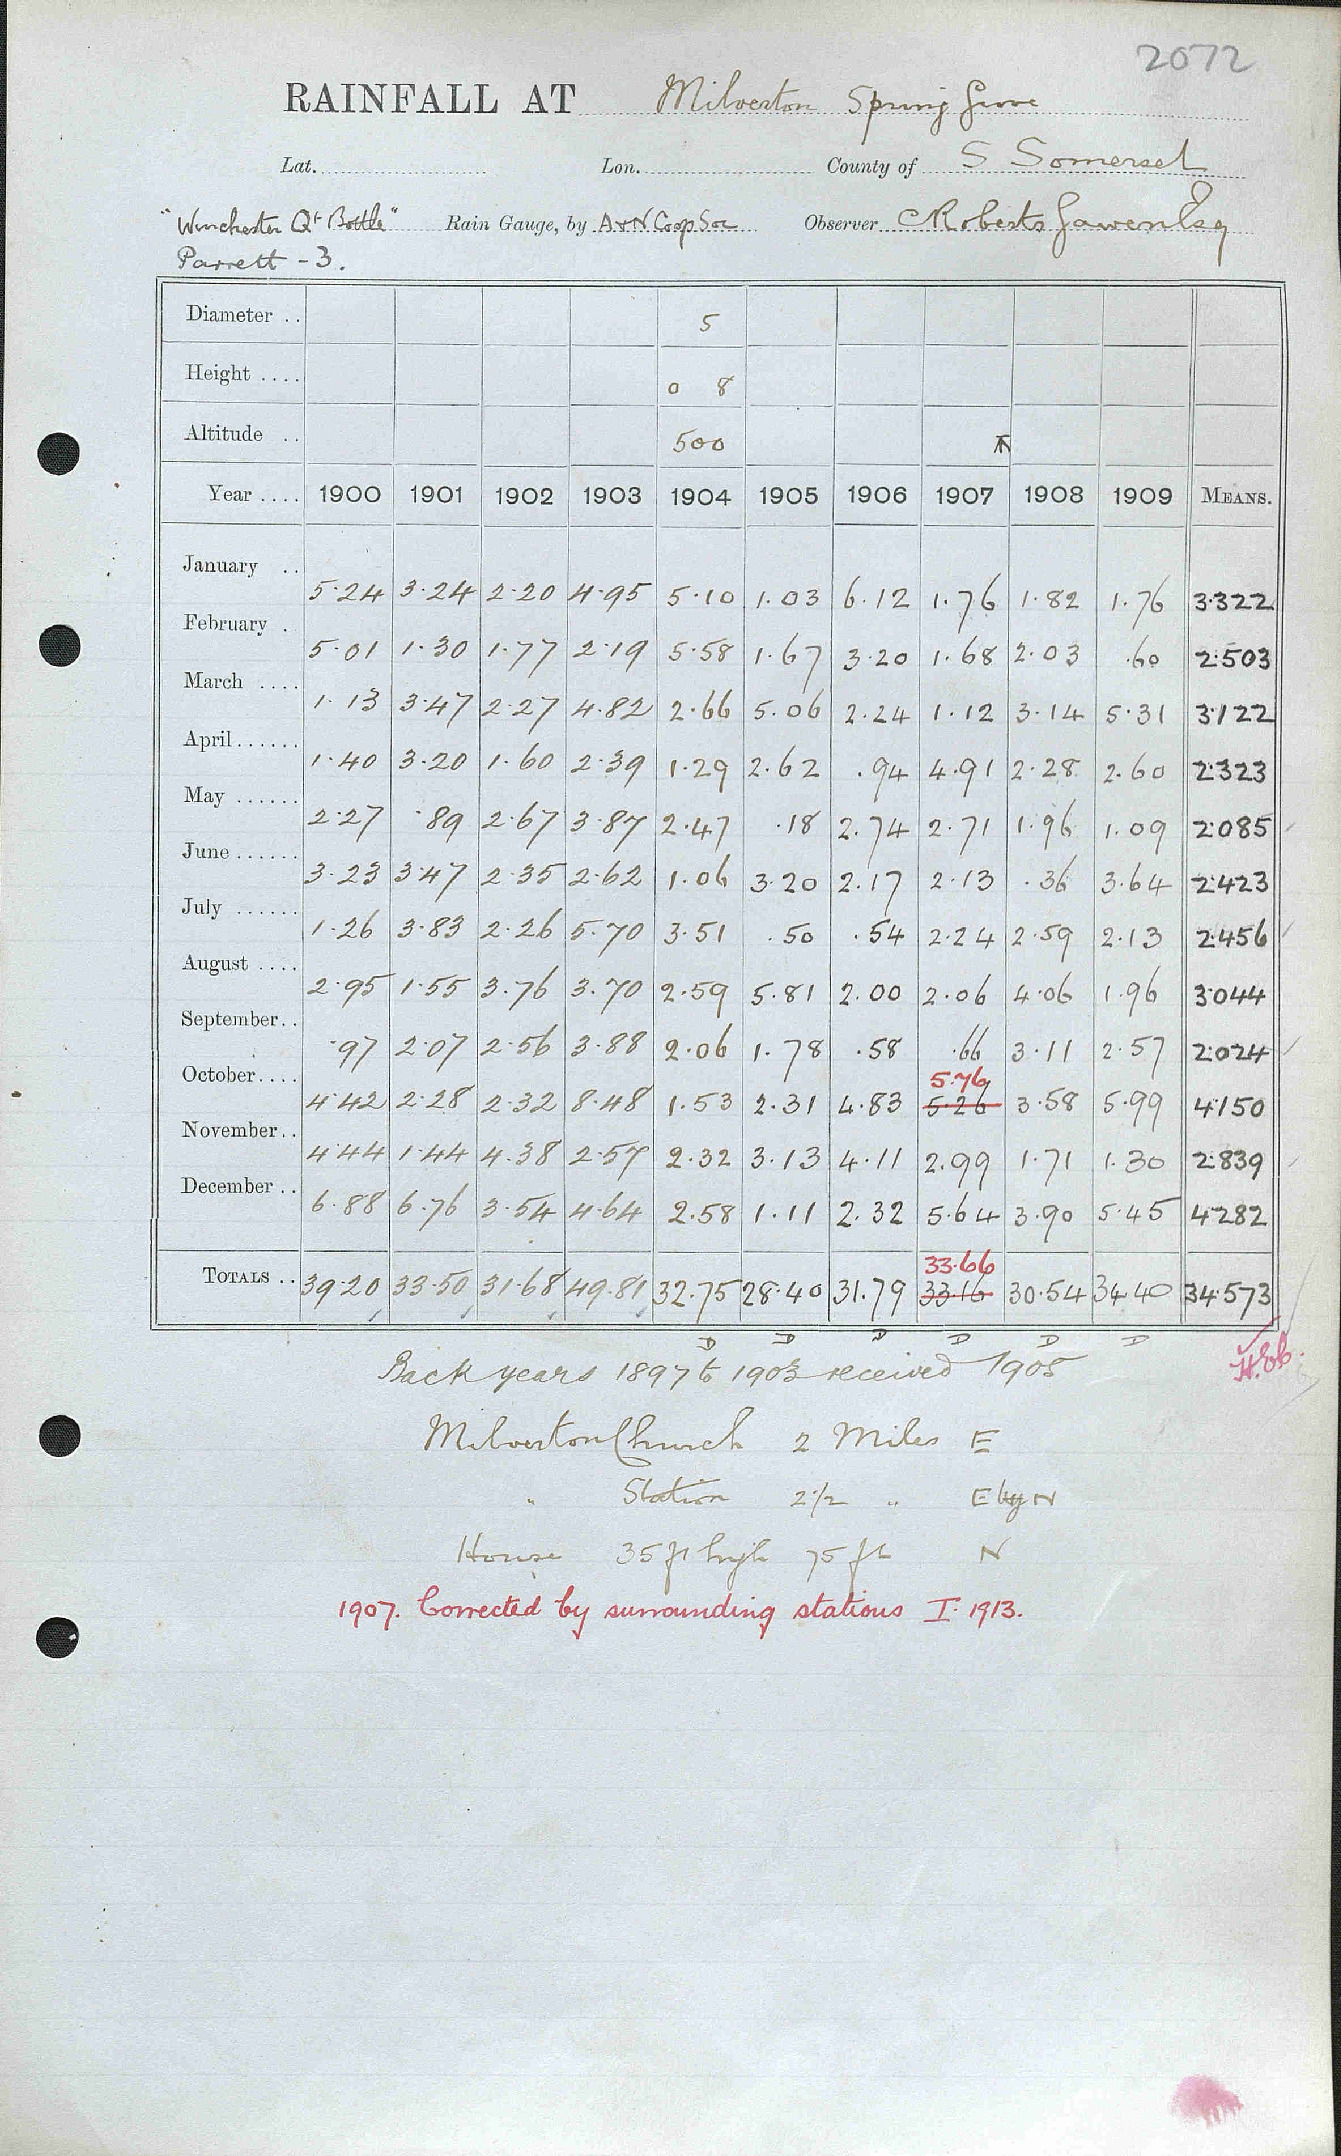 2072
RAINFALL AT Milverton Spring Grove
Lat. Lon. County of S Somerset
"Winchester Qt Bottle" Rain Gauge, by A & N Coop Soc Observer C Roberts Gawen Esq
Parrett - 3.
Diameter .. 5
Height .... 0 8
Altitude .. 500
Year .... 1900 1901 1902 1903 1904 1905 1906 1907 1908 1909 MEANS.
January .. 5.24 3.24 2.20 4.95 5.10 1.03 6.12 1.76 1.82 1.76 3.322
February . 5.01 1.30 1.77 2.19 5.58 1.67 3.20 1.68 2.03 .60 2.503
March .... 1.13 3.47 2.27 4.82 2.66 5.06 2.24 1.12 3.14 5.31 3.122
April...... 1.40 3.20 1.60 2.39 1.29 2.62 .94 4.91 2.28 2.60 2.323
May ...... 2.27 .89 2.67 3.87 2.47 .18 2.74 2.71 1.96 1.09 2.085
June ...... 3.23 3.47 2.35 2.62 1.06 3.20 2.17 2.13 .36 3.64 2.423
July ...... 1.26 3.83 2.26 5.70 3.51 .50 .54 2.24 2.59 2.13 2.456
August .... 2.95 1.55 3.76 3.70 2.59 5.81 2.00 2.06 4.06 1.96 3.044
September.. .97 2.07 2.56 3.88 2.06 1.78 .58 .66 3.11 2.57 2.024
5.76
October.... 4.42 2.28 2.32 8.48 1.53 2.31 4.83 5.26 3.58 5.99 4.150
November.. 4.44 1.44 4.38 2.57 2.32 3.13 4.11 2.99 1.71 1.30 2.839
December .. 6.88 6.76 3.54 4.64 2.58 1.11 2.32 5.64 3.90 5.45 4.282
33.66
TOTALS .. 39.20 33.50 31.68 49.81 32.75 28.40 31.79 33.16 30.54 34.40 34.573
D D D D D D
Back years 1897 to 1903 received 1905
Milverton Church 2 Miles E
" Station 2 1/2 " E by N
House 35 ft high 75 ft N
1907. Corrected by surrounding stations I. 1913.